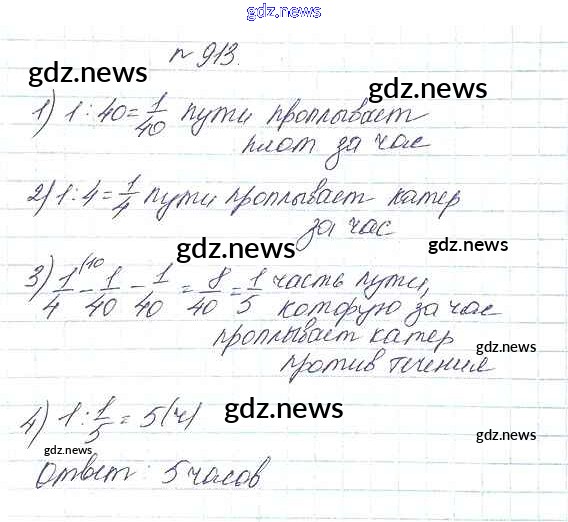 gdz.news
№ 913.
gdz.news
gdz.news
1) 1 : 40 = 1/40 пути проплывает
плот за час
2) 1 : 4 = 1/4 пути проплывает катер
за час
gdz.news
gdz.news
3) 1/4 (10 - 1/40 - 1/40 = 8/40 = 1/5 часть пути,
которую за час
проплывает катер
gdz.news
против течения
4) 1 : 1/5 = 5 (ч)
gdz.news
gdz.news
gdz.news
Ответ: 5 часов